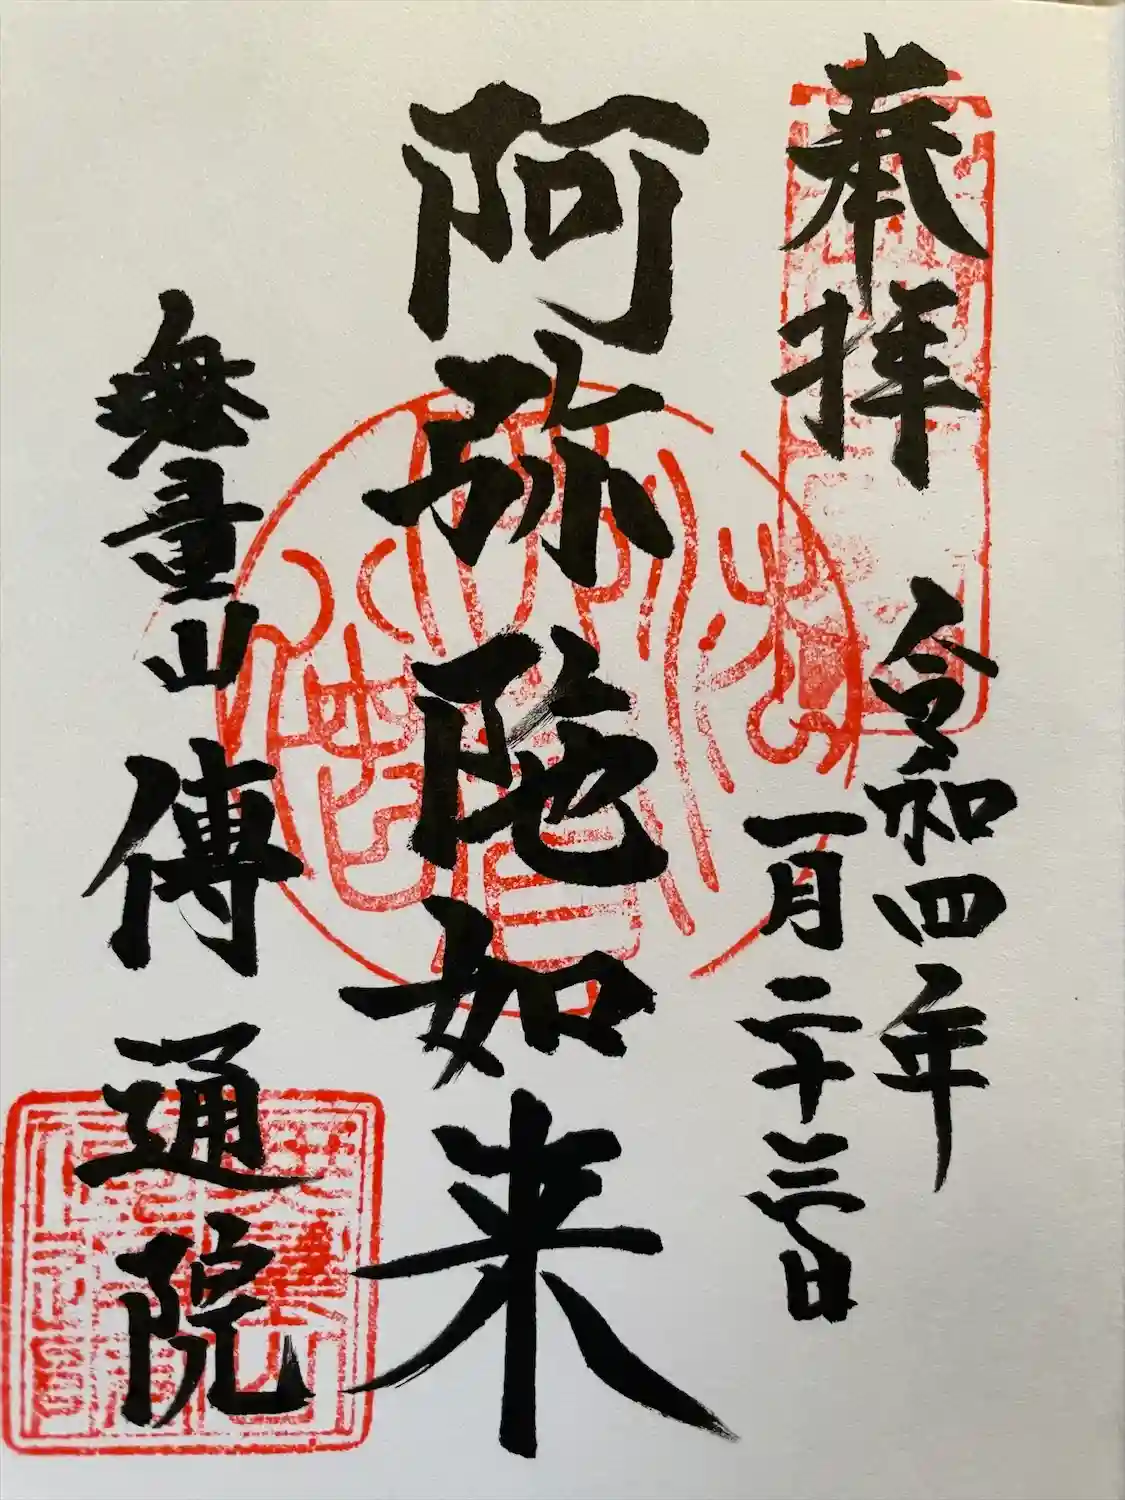 奉拝
令和四年
一月二十三日
阿弥陀如来
無量山
傳通院